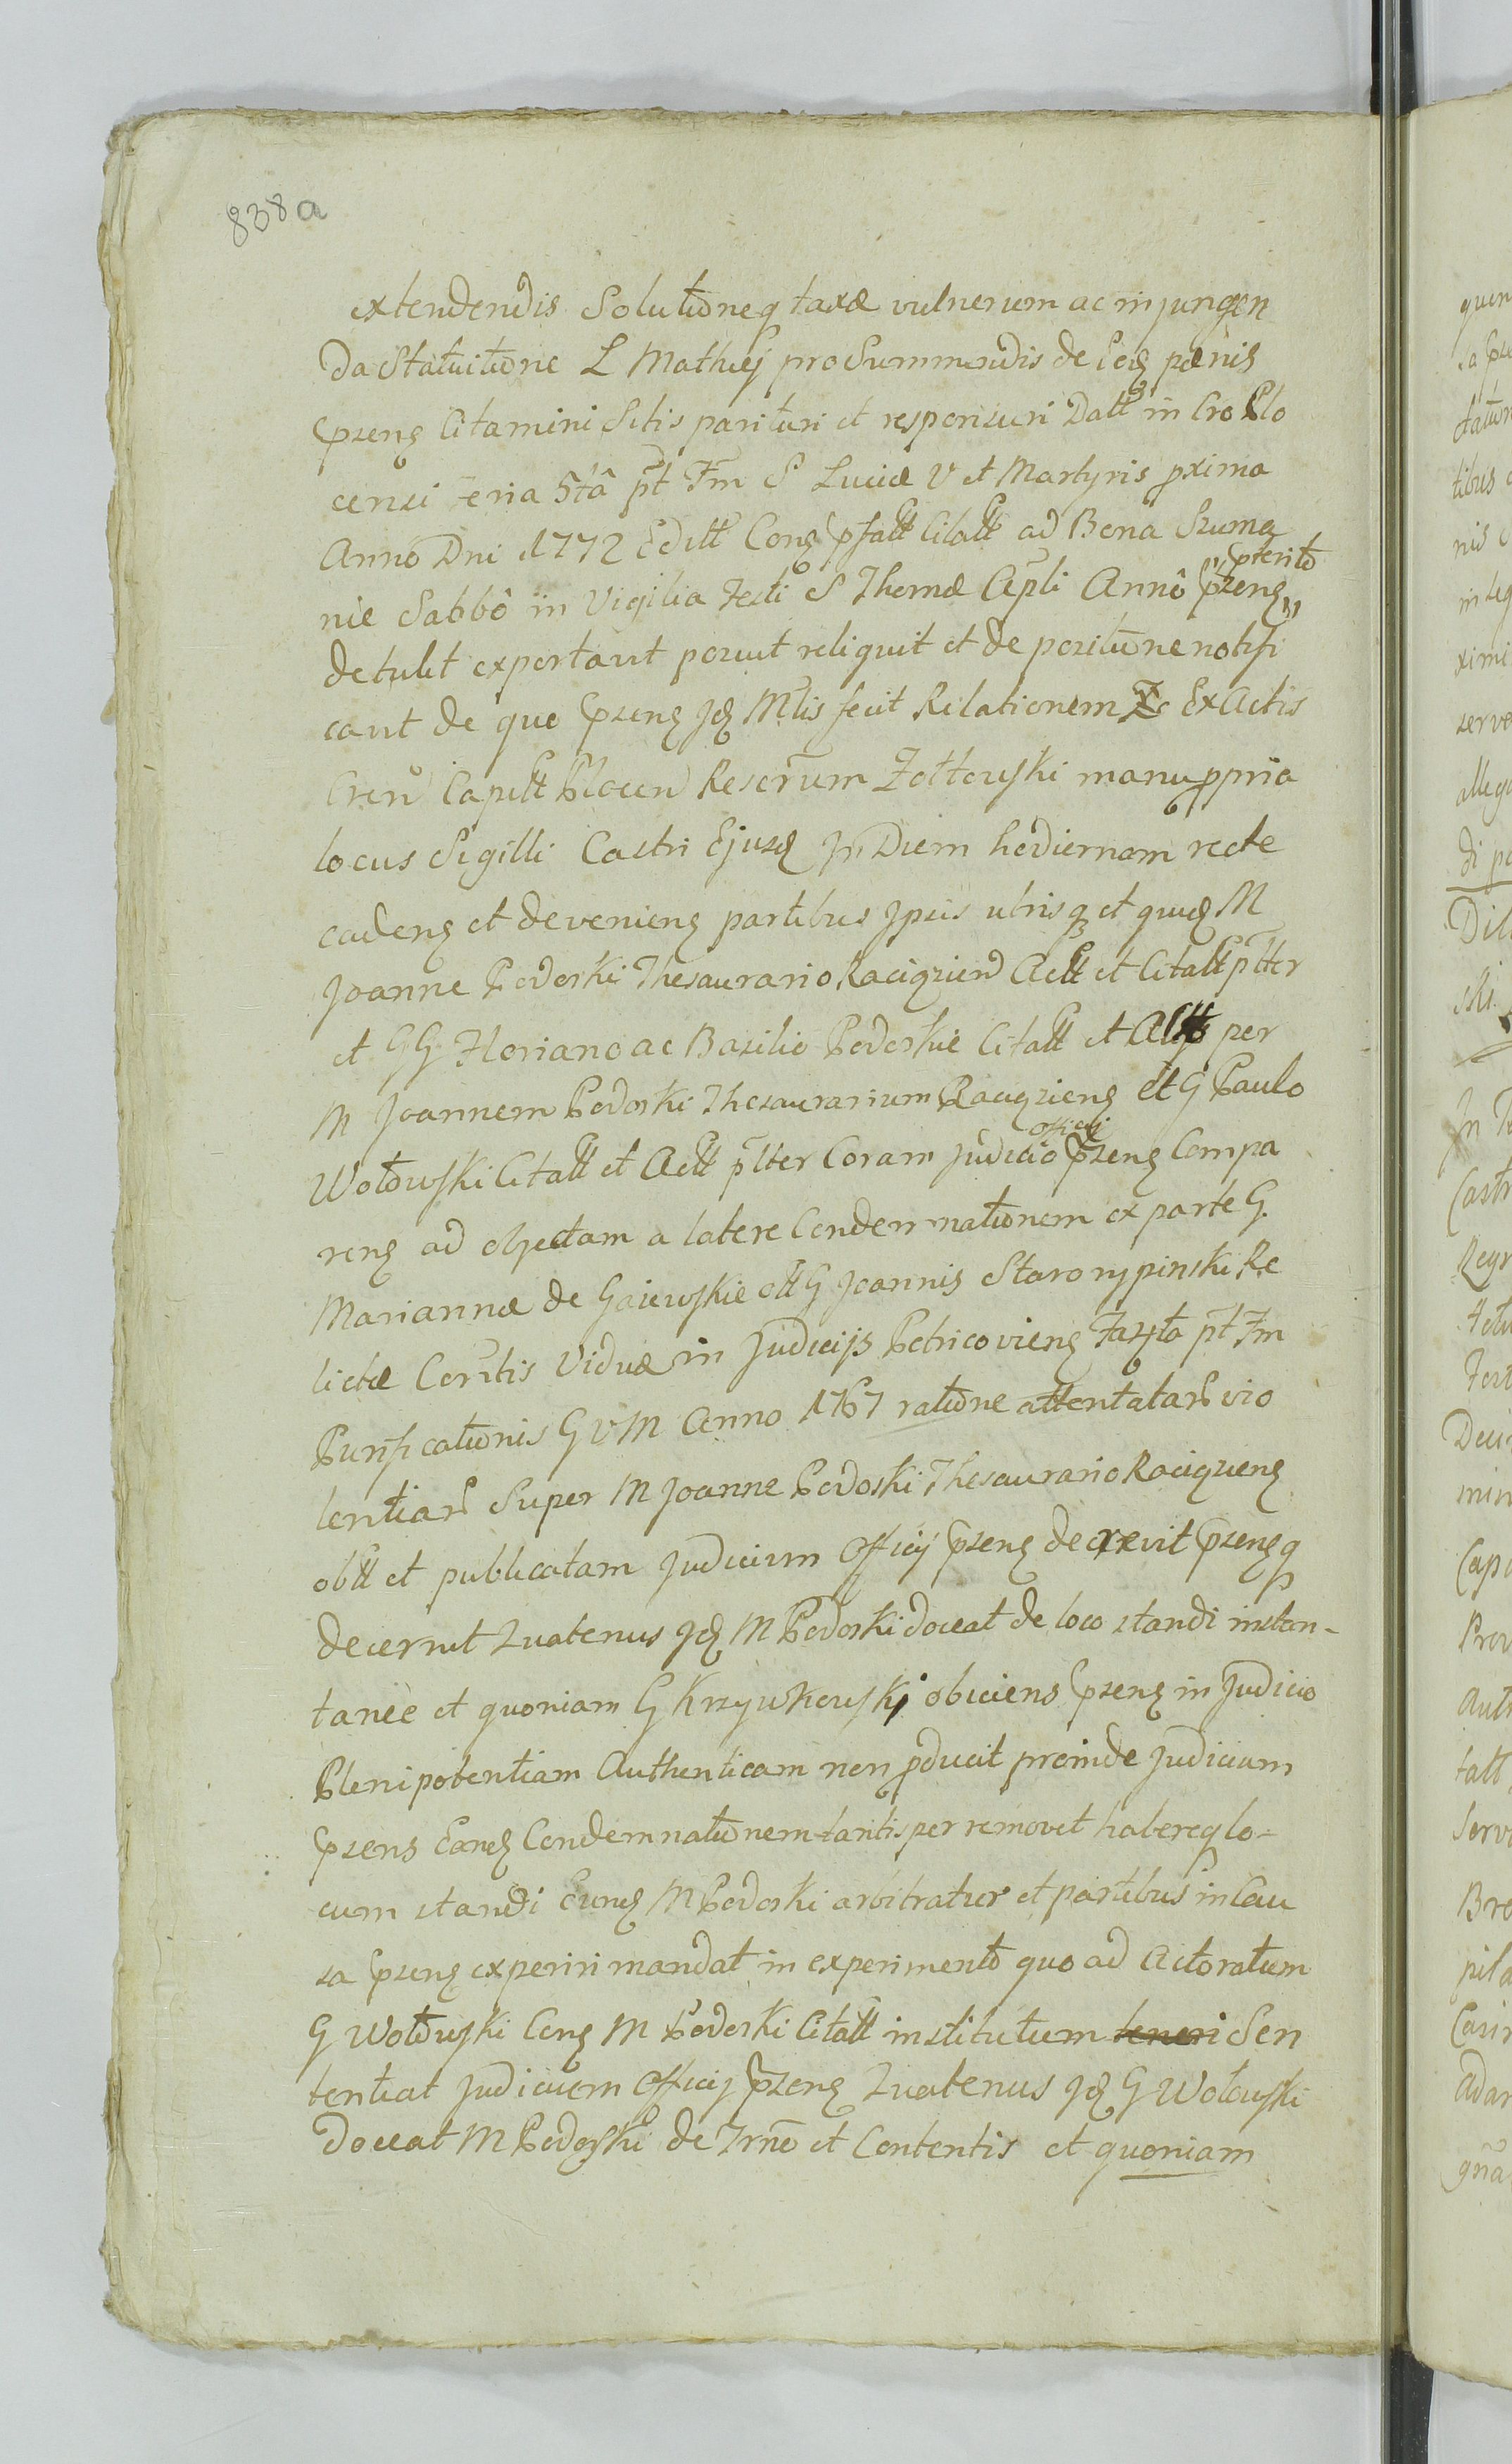 838a
extendendis Solutioneq taxæ vulnerum ac injungen
da Statuitione L Mathiej pro Summendis de Leg pænis
pzens Citamini Sitis parituri et responsuri Datt in Cro Plo
censi feria 5tâ pt Fm S Luciæ V et Martyris pxima
Anno Dni 1772 Editt Cong pfatt Citatt ad Bona Szuma
pterito
nie Sabbô in Vigilia Festi S Thomæ Apli Annô pzens
detulit exportavit posuit reliquit et de positione notifi
cavit de quo pzens Jd Mlis fecit Relationem Ex Actis
Cren Capitt Plocen Rescrum Zołtowski manu ppria
locus Sigilli Castri Ejusd In Diem hodiernam recte
cadens et deveniens partibus Ipsis utrisq et quid M
Joanne Podoski Thesaurario Raciązien Actt et Citatt pltter
et GG Floriano ac Bazilio Podoskie Citatt et per
M Joannem Podoski Thesaurarium Raciąziens et G Paulo
Officij
Wołowski Citatt et Actt pltter Coram Judicio pzens Compa
rens ad objectam a latere Condemnationem ex parte G.
Mariannæ de Gaiewskie ott G Joannis Starorypinski Re
lictæ Consortis Viduæ in Judicijs Petricoviens Fa 4ta pt Fm
Purificationis G V M Anno 1767 ratione attentatar vio
lentiar Super M Joanne Podoski Thesaurario Raciąziens
obtt et publicatam Judicium Officij pzens decrevit pzensq
decernit Quatenus Jd M Podoski doceat de loco standi instan-
tanee et quoniam G Krzywkowski obiciens pzens in Judicio
Plenipotentiam Authenticam non pducit proinde Judicium
pzens Eand Condemnationem tantisper removet habereq lo-
cum standi Eund M Podoski arbitratur et partibus in Cau
sa pzens experiri mandat in experimento quo ad Actoratum
G Wołowski Cong M Podoski Citatt institutum teneri Sen
tentiat Judicium Officij pzens Quatenus Jd G Wołowski
doceat M Podoski de Trno et Contentis et quoniam